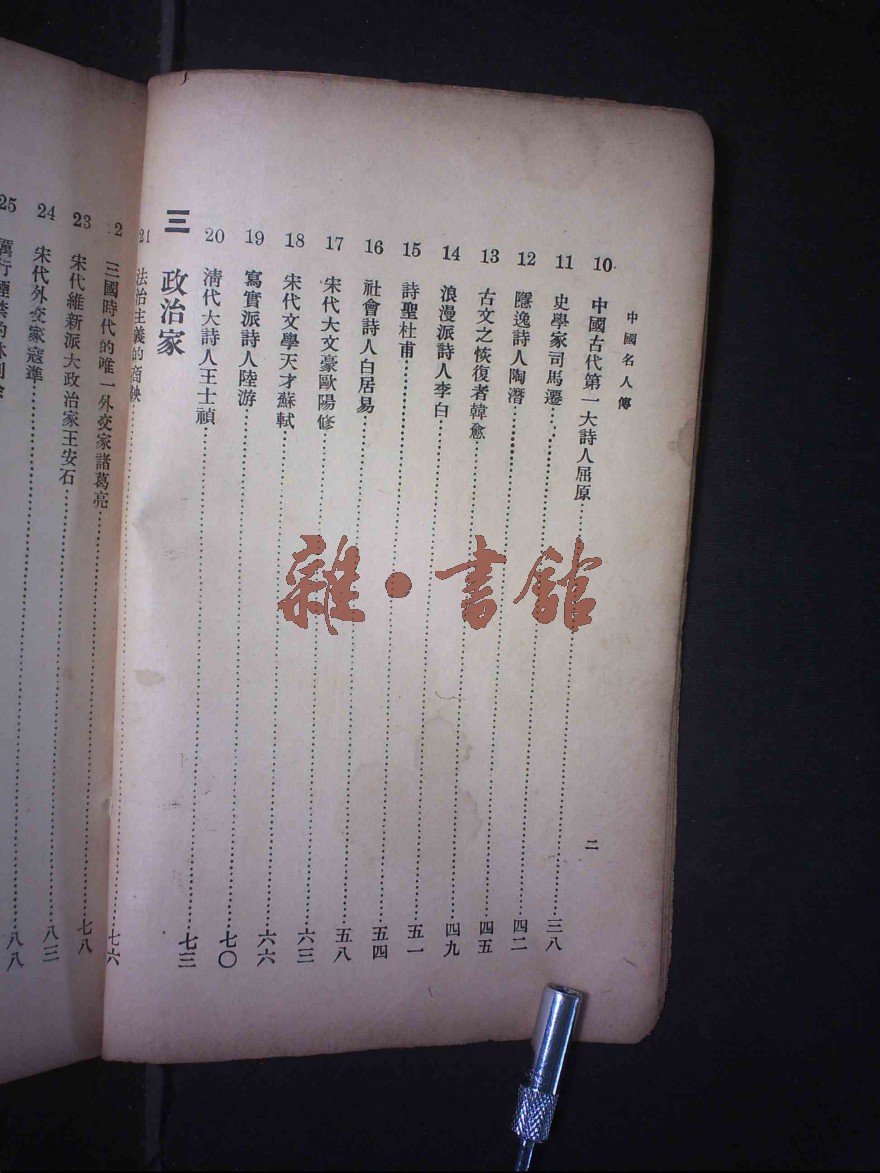 中國名人傳
二
10 中國古代第一大詩人屈原……三八
11 史學家司馬遷……四二
12 隱逸詩人陶潛……四五
13 古文之恢復者韓愈……四九
14 浪漫派詩人李白……五一
15 詩聖杜甫……五四
16 社會詩人白居易……五八
17 宋代大文豪歐陽修……六三
18 宋代文學天才蘇軾……六六
19 寫實派詩人陸游……七〇
20 清代大詩人王士禎……七三
三 政治家
21 法治主義的商鞅……七六
2 三國時代的唯一外交家諸葛亮……七八
23 宋代維新派大政治家王安石……八三
24 宋代外交家寇準……八八
25 厲行煙禁的林則徐
雜·書館